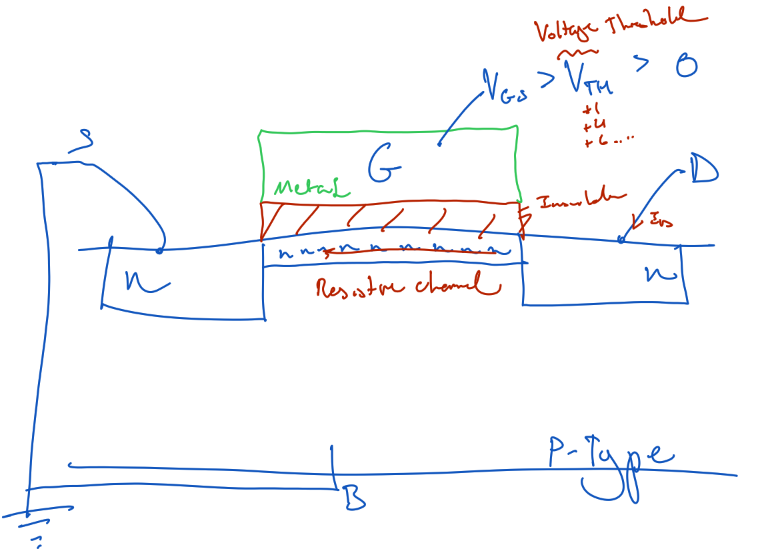 Voltage Threshold
V_GS > V_TH > 0
+1
+4
+6 ....
S
G
D
Metal
Insulator
I_DS
n n n n n n n n
n
n
Resistive channel
P-Type
B